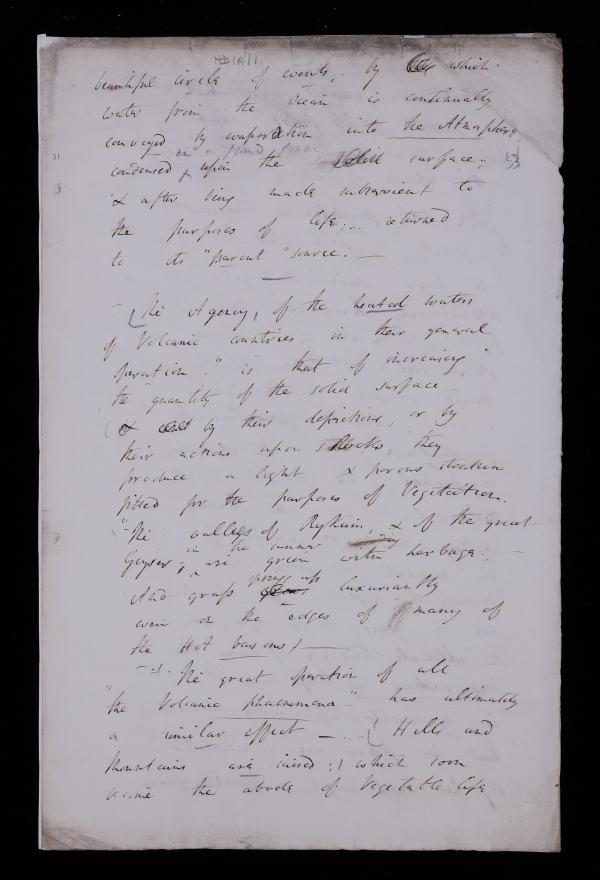 HD/A/1
beautiful circle of events, by which
water from the Ocean is continually
conveyed by evaporation into the Atmosphere
in a fluid form
condensed upon the Solid surface; 53
31
& after being made subservient to
the purposes of life; returned
to its "parent" source. —
— The Agency, of the heated waters
of Volcanic countries in their general
operation "is" that of increasing
the quantity of the solid surface
& by their depositions, or by
their actions upon Rocks, they
produce a light & porous stratum
fitted for the purposes of Vegetation.
"The valleys of Rykum, & of the great
in the summer
Geyser, are green with herbage; —
spring up
And grass luxuriantly
even on the edges of many of
the Hot basons) —
— The great operation of all
"the Volcanic phaenomena" has ultimately
a similar effect — Hills and
Mountains are raised; which soon
become the abode of Vegetable life